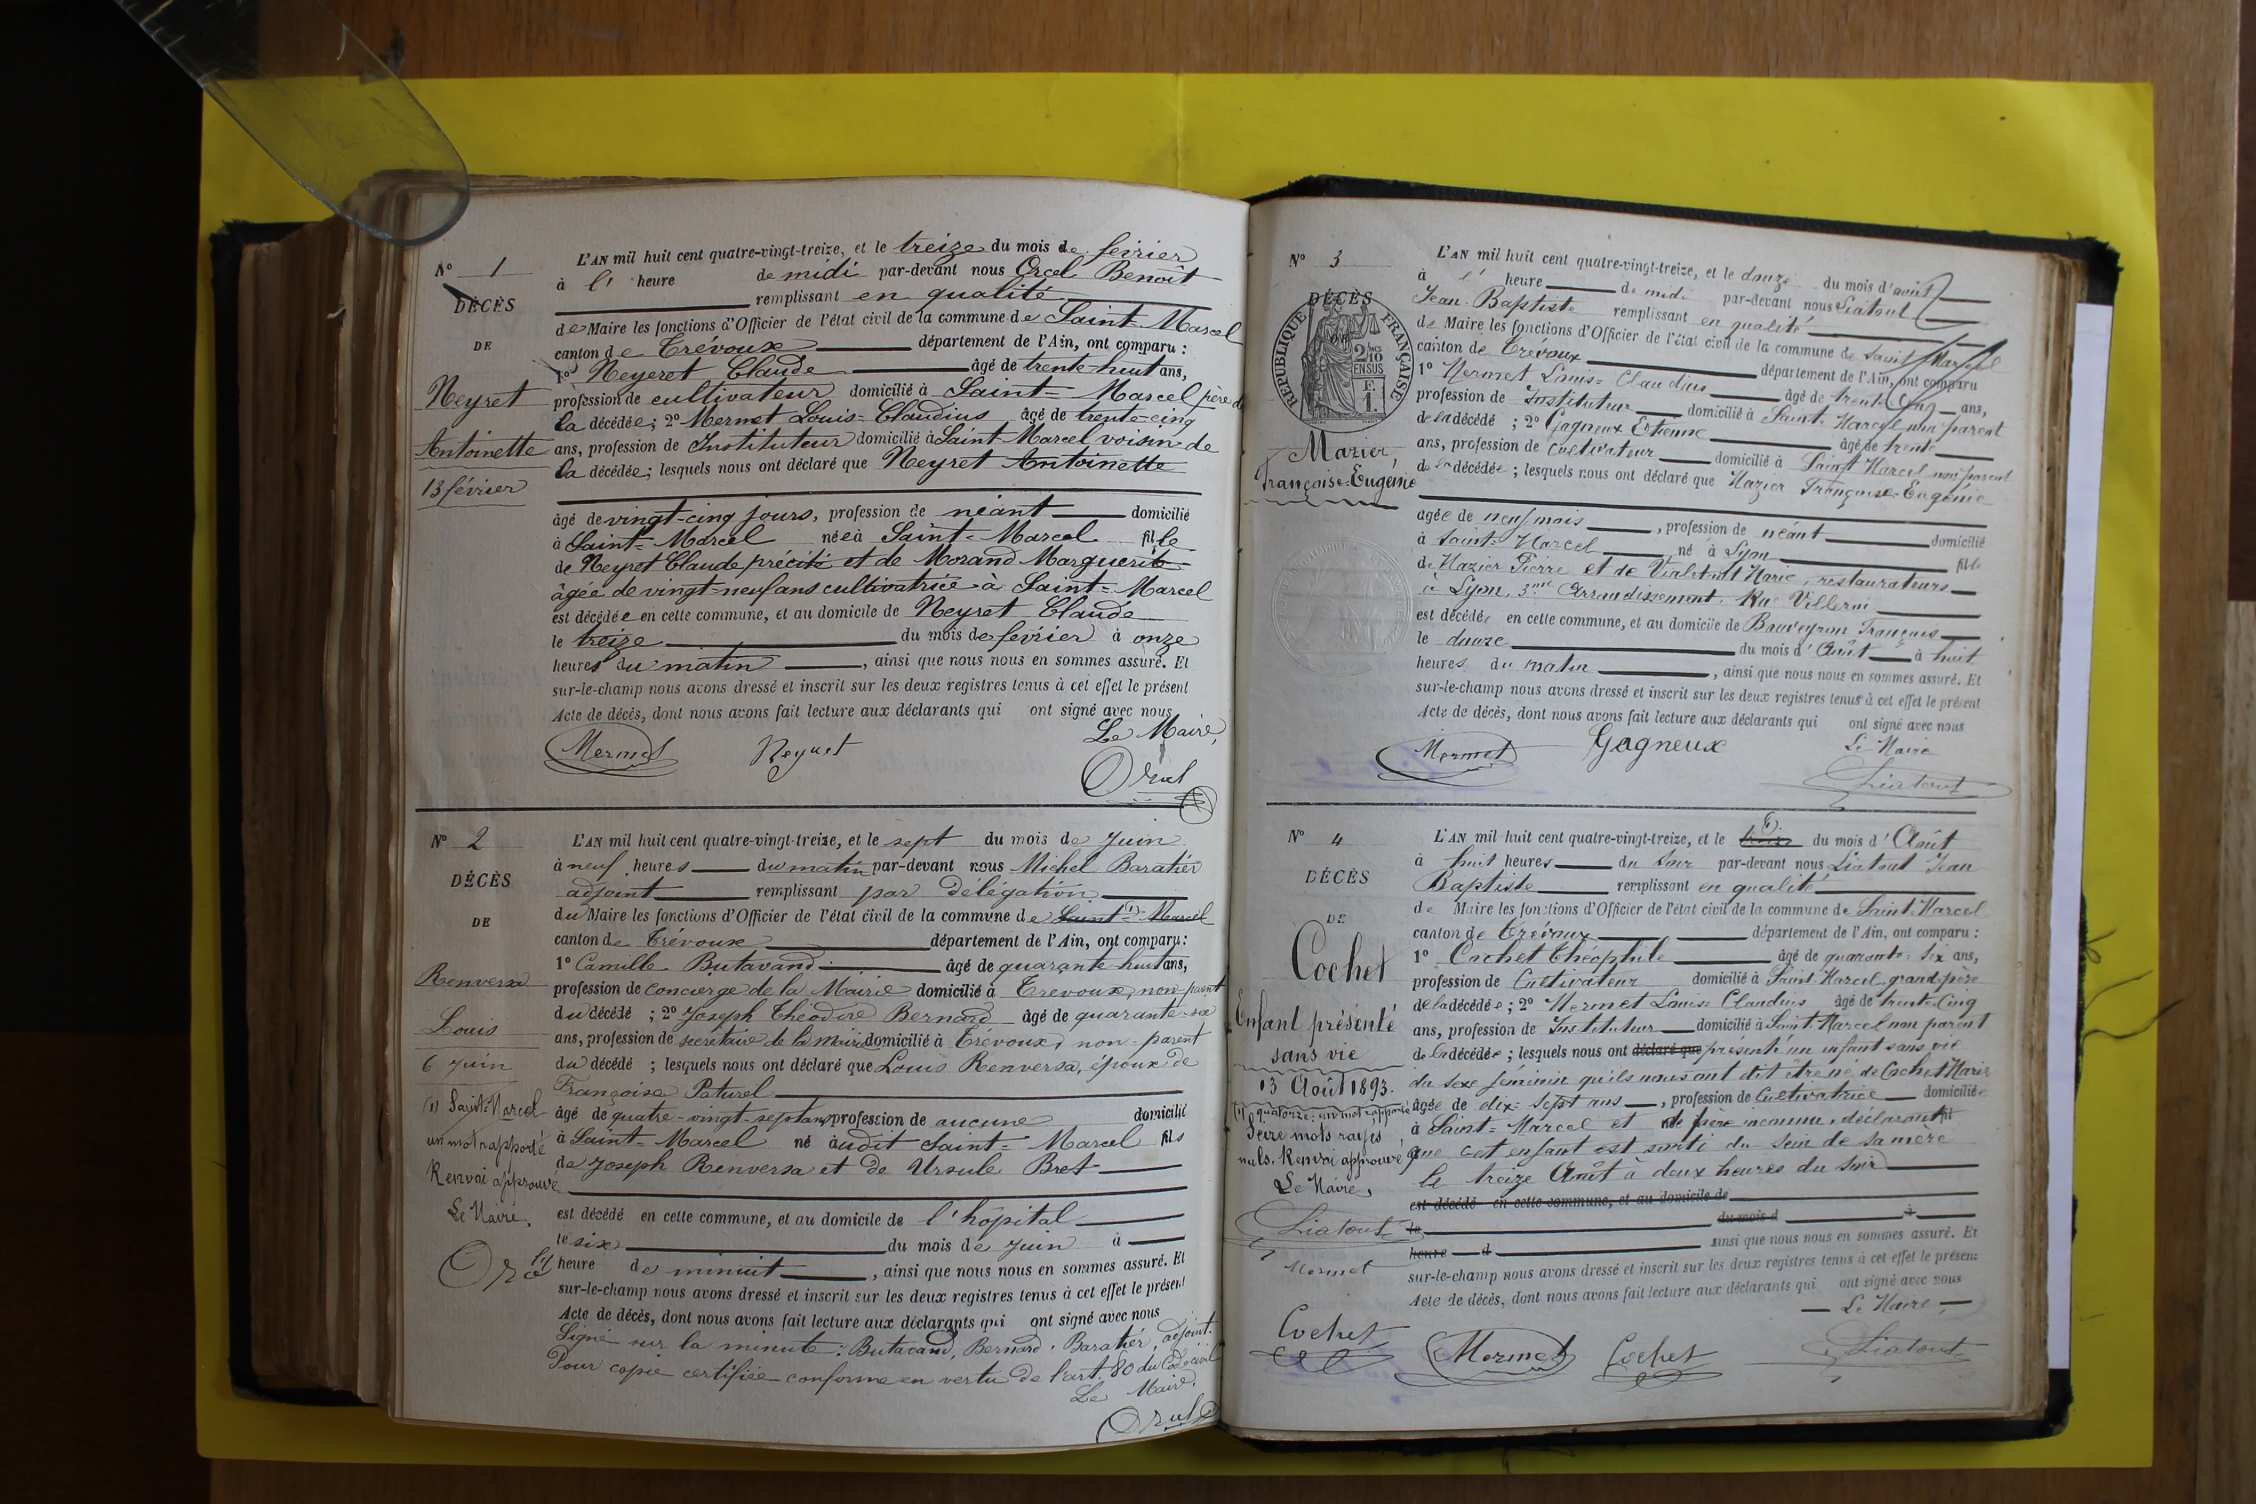 N° 1
DÉCÈS
DE
Neyret
Antoinette
13 février
L'AN mil huit cent quatre-vingt-treize, et le treize du mois de février
à l' heure de midi par-devant nous Orcel Benoît
remplissant en qualité
de Maire les fonctions d'Officier de l'état civil de la commune de Saint-Marcel
canton de Trévoux département de l'Ain, ont comparu :
1° Neyeret Claude âgé de trente-huit ans,
profession de cultivateur domicilié à Saint-Marcel père de
la décédée ; 2° Mermet Louis-Claudius âgé de trente-cinq
ans, profession de Instituteur domicilié à Saint-Marcel voisin de
la décédée ; lesquels nous ont déclaré que Neyret Antoinette
âgé de vingt-cinq jours, profession de néant domicilié
à Saint-Marcel née à Saint-Marcel fille
de Neyret Claude précité et de Morand Marguerite
âgée de vingt-neuf ans cultivatrice à Saint-Marcel
est décédée en cette commune, et au domicile de Neyret Claude
le treize du mois de février à onze
heures du matin, ainsi que nous nous en sommes assuré. Et
sur-le-champ nous avons dressé et inscrit sur les deux registres tenus à cet effet le présent
Acte de décès, dont nous avons fait lecture aux déclarants qui ont signé avec nous
Le Maire,
Mermet Neyret
Orcel
N° 2
DÉCÈS
DE
Renversa
Louis
6 Juin
(1) Saint-Marcel
un mot rapporté
Renvoi approuvé
Le Maire,
Orcel
L'AN mil huit cent quatre-vingt-treize, et le sept du mois de Juin
à neuf heures du matin par-devant nous Michel Baratier
adjoint remplissant par délégation
du Maire les fonctions d'Officier de l'état civil de la commune de Saint-(1) Marcel
canton de Trévoux département de l'Ain, ont comparu :
1° Camille Butavand âgé de quarante-huit ans,
profession de concierge de la Mairie domicilié à Trévoux, non-parent
du décédé ; 2° Joseph Théodore Bernard âgé de quarante-six
ans, profession de secrétaire de la Mairie domicilié à Trévoux, non-parent
du décédé ; lesquels nous ont déclaré que Louis Renversa, époux de
Françoise Paturel
âgé de quatre-vingt-sept ans, profession de aucune domicilié
à Saint-Marcel né audit Saint-Marcel fils
de Joseph Renversa et de Ursule Bret
est décédé en cette commune, et au domicile de l'hôpital
le six du mois de Juin à
heure de minuit, ainsi que nous nous en sommes assuré. Et
sur-le-champ nous avons dressé et inscrit sur les deux registres tenus à cet effet le présent
Acte de décès, dont nous avons fait lecture aux déclarants qui ont signé avec nous
Signé sur la minute : Butavand, Bernard, Baratier, adjoint.
Pour copie certifiée conforme en vertu de l'art. 80 du Code civil
Le Maire,
Orcel
N° 3
DÉCÈS
DE
RÉPUBLIQUE FRANÇAISE
2/10 EN SUS
F. 1.
Mazier,
Françoise-Eugénie
L'AN mil huit cent quatre-vingt-treize, et le douze du mois d'août
à l' heure de midi par-devant nous Liatout
Jean-Baptiste remplissant en qualité
de Maire les fonctions d'Officier de l'état civil de la commune de Saint-Marcel
canton de Trévoux département de l'Ain, ont comparu
1° Mermet Louis-Claudius âgé de trente cinq ans,
profession de Instituteur domicilié à Saint-Marcel non parent
de la décédé ; 2° Gagneux Etienne âgé de trente
ans, profession de cultivateur domicilié à Saint Marcel non parent
de la décédée ; lesquels nous ont déclaré que Mazier Françoise-Eugénie
agée de neuf mois, profession de néant domicilié
à Saint-Marcel né à Lyon fille
de Mazier Pierre et de Marie, restaurateurs
à Lyon, 3me Arrondissement, Rue Villeroi
est décédée en cette commune, et au domicile de Bouveyron François
le douze du mois d'Août à huit
heures du matin, ainsi que nous nous en sommes assuré. Et
sur-le-champ nous avons dressé et inscrit sur les deux registres tenus à cet effet le présent
Acte de décès, dont nous avons fait lecture aux déclarants qui ont signé avec nous
Le Maire
Mermet Gagneux
Liatout
N° 4
DÉCÈS
DE
Cochet
Enfant présenté
sans vie
13 Août 1893.
(1) quatorze : un mot rapporté
Seize mots rayés
nuls. Renvoi approuvé
Le Maire,
Liatout
Mermet
Cochet
L'AN mil huit cent quatre-vingt-treize, et le treize (1) du mois d'Août
à huit heures du soir par-devant nous Liatout Jean
Baptiste remplissant en qualité
de Maire les fonctions d'Officier de l'état civil de la commune de Saint-Marcel
canton de Trévoux département de l'Ain, ont comparu :
1° Cochet Théophile âgé de quarante-six ans,
profession de Cultivateur domicilié à Saint-Marcel grand-père
de la décédée ; 2° Mermet Louis Claudius âgé de trente-cinq
ans, profession de Instituteur domicilié à Saint-Marcel non parent
de la décédée ; lesquels nous ont déclaré que présenté un enfant sans vie
du sexe féminin qu'ils nous ont dit être né de Cochet Marie
âgée de dix-sept ans, profession de Cultivatrice domiciliée
à Saint-Marcel et de père inconnu, déclarant fil
que cet enfant est sorti du sein de sa mère
le treize Août à deux heures du soir
est décédé en cette commune, et au domicile de
le du mois d à
heure d ainsi que nous nous en sommes assuré. Et
sur-le-champ nous avons dressé et inscrit sur les deux registres tenus à cet effet le présent
Acte de décès, dont nous avons fait lecture aux déclarants qui ont signé avec nous
Le Maire,
Mermet Cochet Liatout